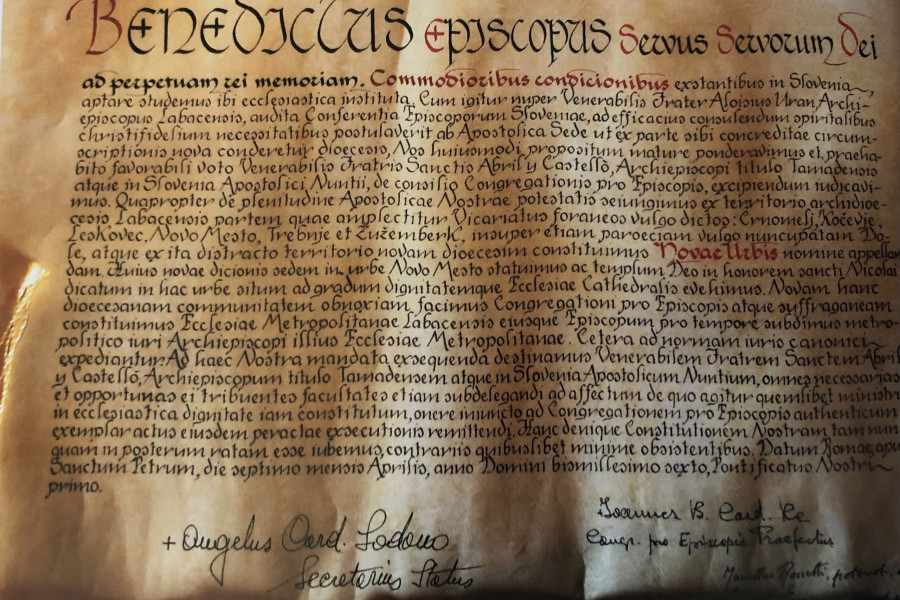 Benedictus Episcopus Servus Servorum Dei
ad perpetuam rei memoriam. Commodioribus condicionibus exstantibus in Slovenia,
aptare studemus ibi ecclesiastica instituta. Cum igitur nuper Venerabilis Frater Aloisius Uran, Archi-
episcopus Labacensis, audita Conferentia Episcoporum Sloveniae, ad efficacius consulendum spiritalibus
christifidelium necessitatibus postulaverit ab Apostolica Sede ut ex parte sibi concreditae circum-
scriptionis nova conderetur dioecesis, Nos huiusmodi propositum mature ponderavimus et, praeha-
bito favorabili voto Venerabilis Fratris Sanctis Abril y Castelló, Archiepiscopi titulo Tamadensis
atque in Slovenia Apostolici Nuntii, de consilio Congregationis pro Episcopis, excipiendum iudicavi-
mus. Quapropter de plenitudine Apostolicae Nostrae potestatis seiungimus ex territorio archidioe-
cesis Labacensis partem quae amplectitur Vicariatus foraneos vulgo dictos: Črnomelj, Kočevje,
Leskovec, Novo Mesto, Trebnje et Žužemberk, insuper etiam paroeciam vulgo nuncupatam Do-
le, atque ex ita distracto territorio novam dioecesim constituimus Novae Urbis nomine appellan
dam. Huius novae dicionis sedem in urbe Novo Mesto statuimus ac templum Deo in honorem sancti Nicolai
dicatum in hac urbe situm ad gradum dignitatemque Ecclesiae Cathedralis evehimus. Novam hanc
dioecesanam communitatem obnoxiam facimus Congregationi pro Episcopis atque suffraganeam
constituimus Ecclesiae Metropolitanae Labacensis eiusque Episcopum pro tempore subdimus metro-
politico iuri Archiepiscopi illius Ecclesiae Metropolitanae. Cetera ad normam iuris canonici
expediantur. Ad haec Nostra mandata exsequenda destinamus Venerabilem Fratrem Sanctem Abril
y Castelló, Archiepiscopum titulo Tamadensem atque in Slovenia Apostolicum Nuntium, omnes necessarias
et opportunas ei tribuentes facultates etiam subdelegandi ad effectum de quo agitur quemlibet ministr
in ecclesiastica dignitate iam constitutum, onere iniuncto ad Congregationem pro Episcopis authenticum
exemplar actus eiusdem peractae exsecutionis remittendi. Hanc denique Constitutionem Nostram tam nun
quam in posterum ratam esse iubemus, contrariis quibuslibet minime obsistentibus. Datum Romae, apu
Sanctum Petrum, die septimo mensis Aprilis, anno Domini bismillesimo sexto, Pontificatus Nostri
primo.
+ Angelus Card. Sodano
Secretarius Status
Ioannes B. Card. Re
Congr. pro Episcopis Praefectus